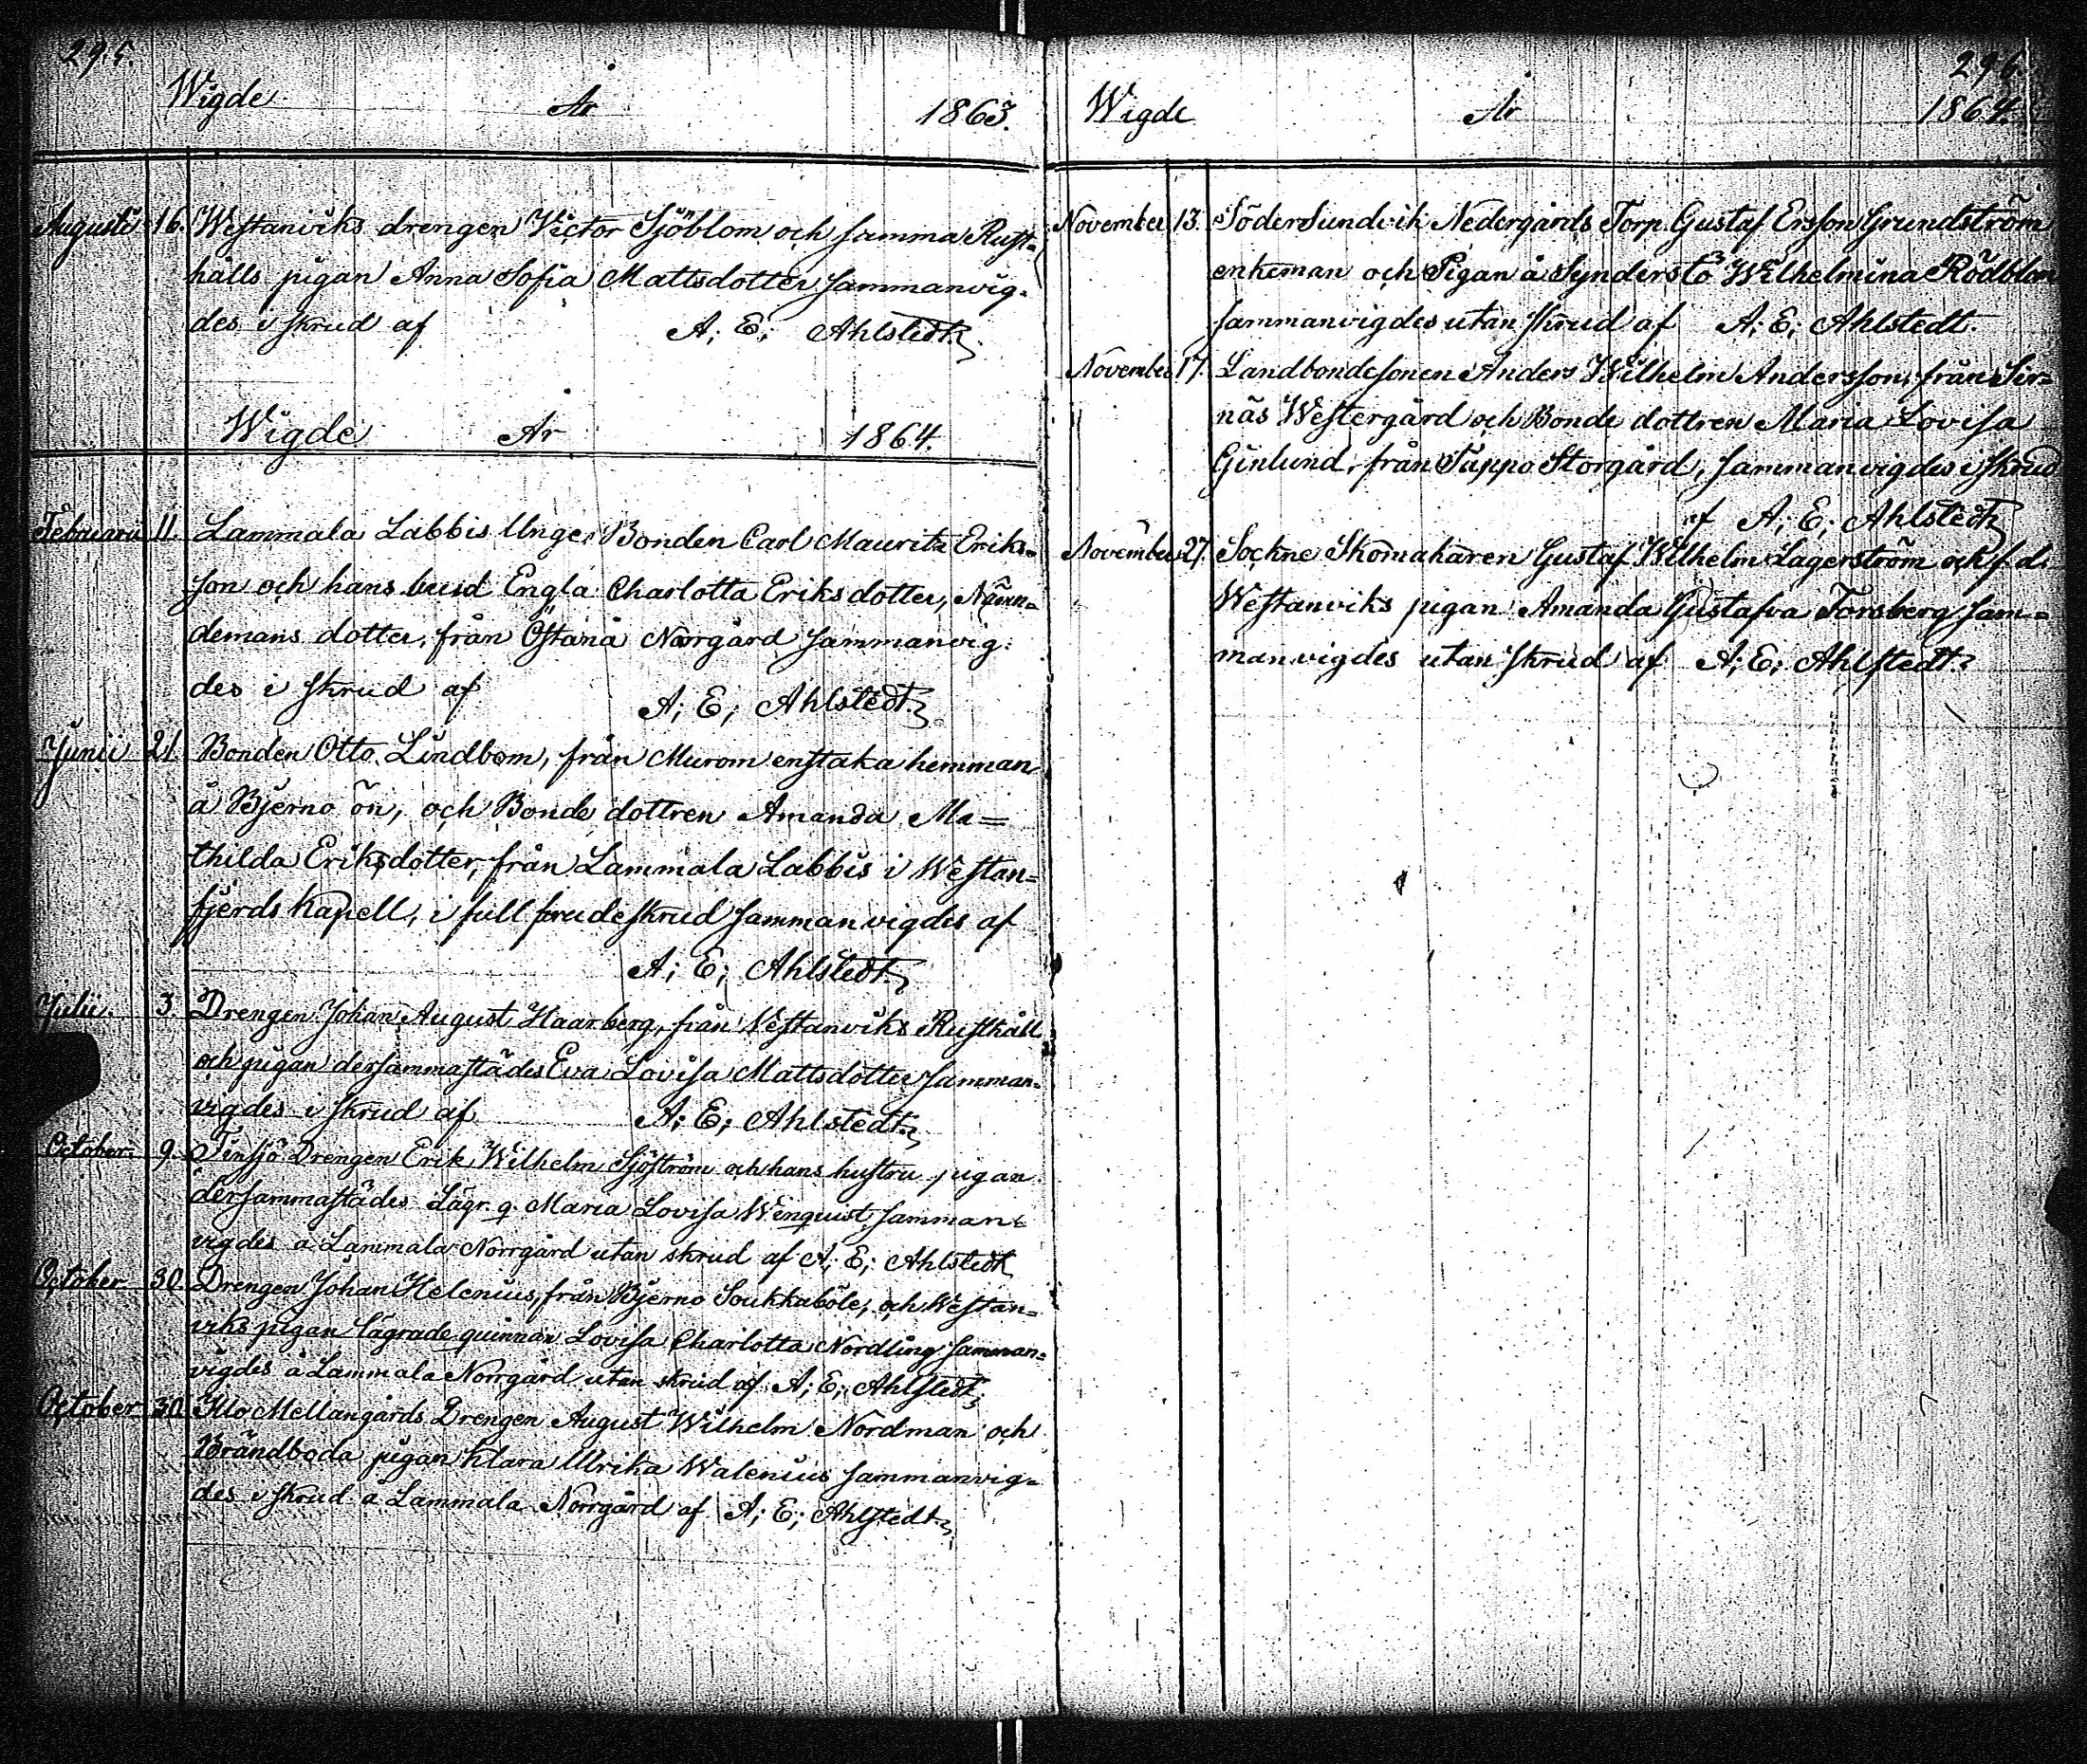 295.
Wigde År 1863.
Augusti 16. Westanviks drengen Victor Sjöblom och samma Rust-
hålls pigan Anna Sofia Mattsdotter sammanvig-
des i skrud af A; E; Ahlstedt
Wigde År 1864.
Februarii 11. Lammala Labbis Unge Bonden Carl Mauritz Eriks-
son och hans brud Engla Charlotta Eriksdotter, Nämn-
demans dotter, från Östanå Norrgård sammanvig-
des i skrud af A; E; Ahlstedt
Junii 21. Bonden Otto Lindbom, från Murom enstaka hemman
å Bjerno ön, och Bonde dottren Amanda Ma=
thilda Eriksdotter, från Lammala Labbis i Westan=
fjerds Kapell, i full brudeskrud sammanvigdes af
A; E; Ahlstedt
Julii. 3. Drengen Johan August Haarberg, från Westanviks Rusthåll
och pigan dersammastädes Eva Lovisa Mattsdotter samman-
vigdes i skrud af A; E; Ahlstedt
October 9. Tensjö Drengen Erik Wilhelm Sjöström och hans hustru pigan
dersammastädes Lägr. q. Maria Lovisa Wenquist, samman-
vigdes å Lammala Norrgård utan skrud af A; E; Ahlstedt
October 30. Drengen Johan Helenius, från Bjerno Soukkaböle, och Westan=
viks pigan lägrade quinnan Lovisa Charlotta Nordling samman=
vigdes å Lammala Norrgård utan skrud af A; E; Ahlstedt
October 30. Illo Mellangårds Drengen August Wilhelm Nordman och
Brändboda pigan Klara Ulrika Walenius sammanvig=
des i skrud å Lammala Norrgård af A; E; Ahlstedt
296.
Wigde År 1864.
November 13. Södersundvik Nedergårds Torp. Gustaf Ersson Grundström
enkeman och Pigan å Synderstö Wilhelmina Rödblom
sammanvigdes utan skrud af A; E; Ahlstedt.
November 17. Landbondesonen Anders Wilhelm Andersson, från Sir=
näs Westergård och Bonde dottren Maria Lovisa
Ginlund, från Pappo Storgård, sammanvigdes i skrud
af A; E; Ahlstedt
November 27. Sockne Skomakaren Gustaf Wilhelm Lagerström och f.d.
Westanviks pigan Amanda Gustafva Forsberg sam=
manvigdes utan skrud af A; E; Ahlstedt